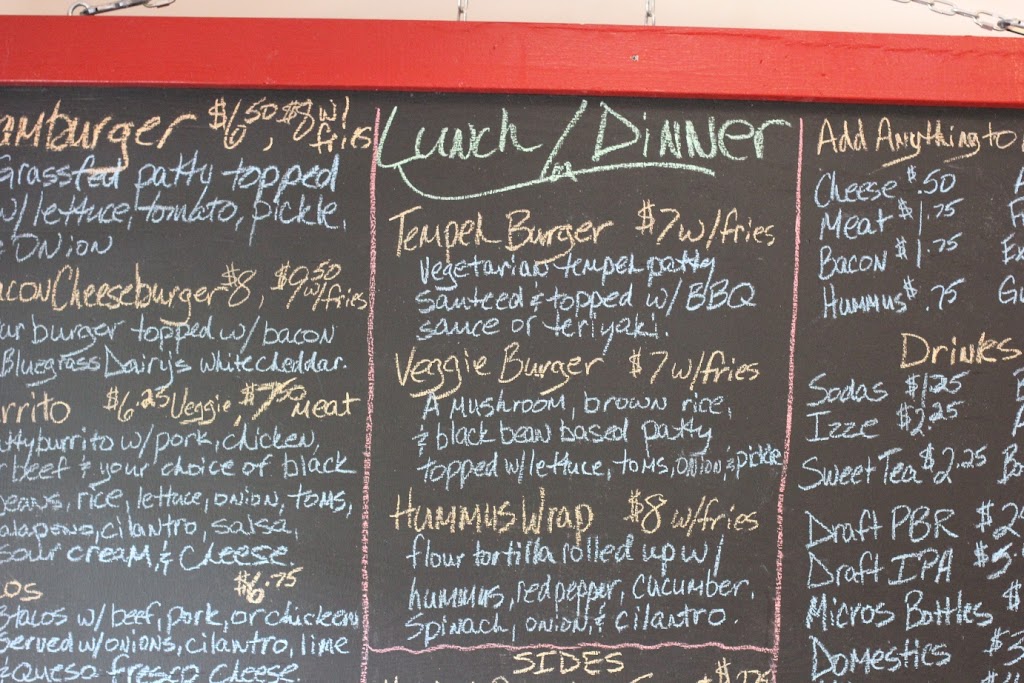 amburger $6.50, $8 w/ fries
Grassfed patty topped
w/ lettuce, tomato, pickle,
& Onion
acon Cheeseburger $8, $9.50 w/fries
ur burger topped w/ bacon
Bluegrass Dairy's white cheddar.
rrito $6.25 Veggie, $7.50 Meat
tty burrito w/ pork, chicken,
r beef & your choice of black
beans, rice, lettuce, onion, toms,
alapenos, cilantro, salsa,
sour cream, & cheese.
os $6.75
3 tacos w/ beef, pork, or chicken
served w/ onions, cilantro, lime
& queso fresco cheese.
Lunch / Dinner
or
Tempeh Burger $7 w/fries
Vegetarian tempeh patty
sauteed & topped w/ BBQ
sauce or teriyaki.
Veggie Burger $7 w/fries
A mushroom, brown rice,
& black bean based patty
topped w/ lettuce, toms, onion & pickle
Hummus Wrap $8 w/fries
flour tortilla rolled up w/
hummus, red pepper, cucumber,
spinach, onion & cilantro.
SIDES
Add Anything to
Cheese $.50
Meat $1.75
Bacon $1.75
Hummus $.75
Drinks
Sodas $1.25
Izze $2.25
Sweet Tea $2.25
Draft PBR $2
Draft IPA $5
Micros Bottles $
Domestics $3